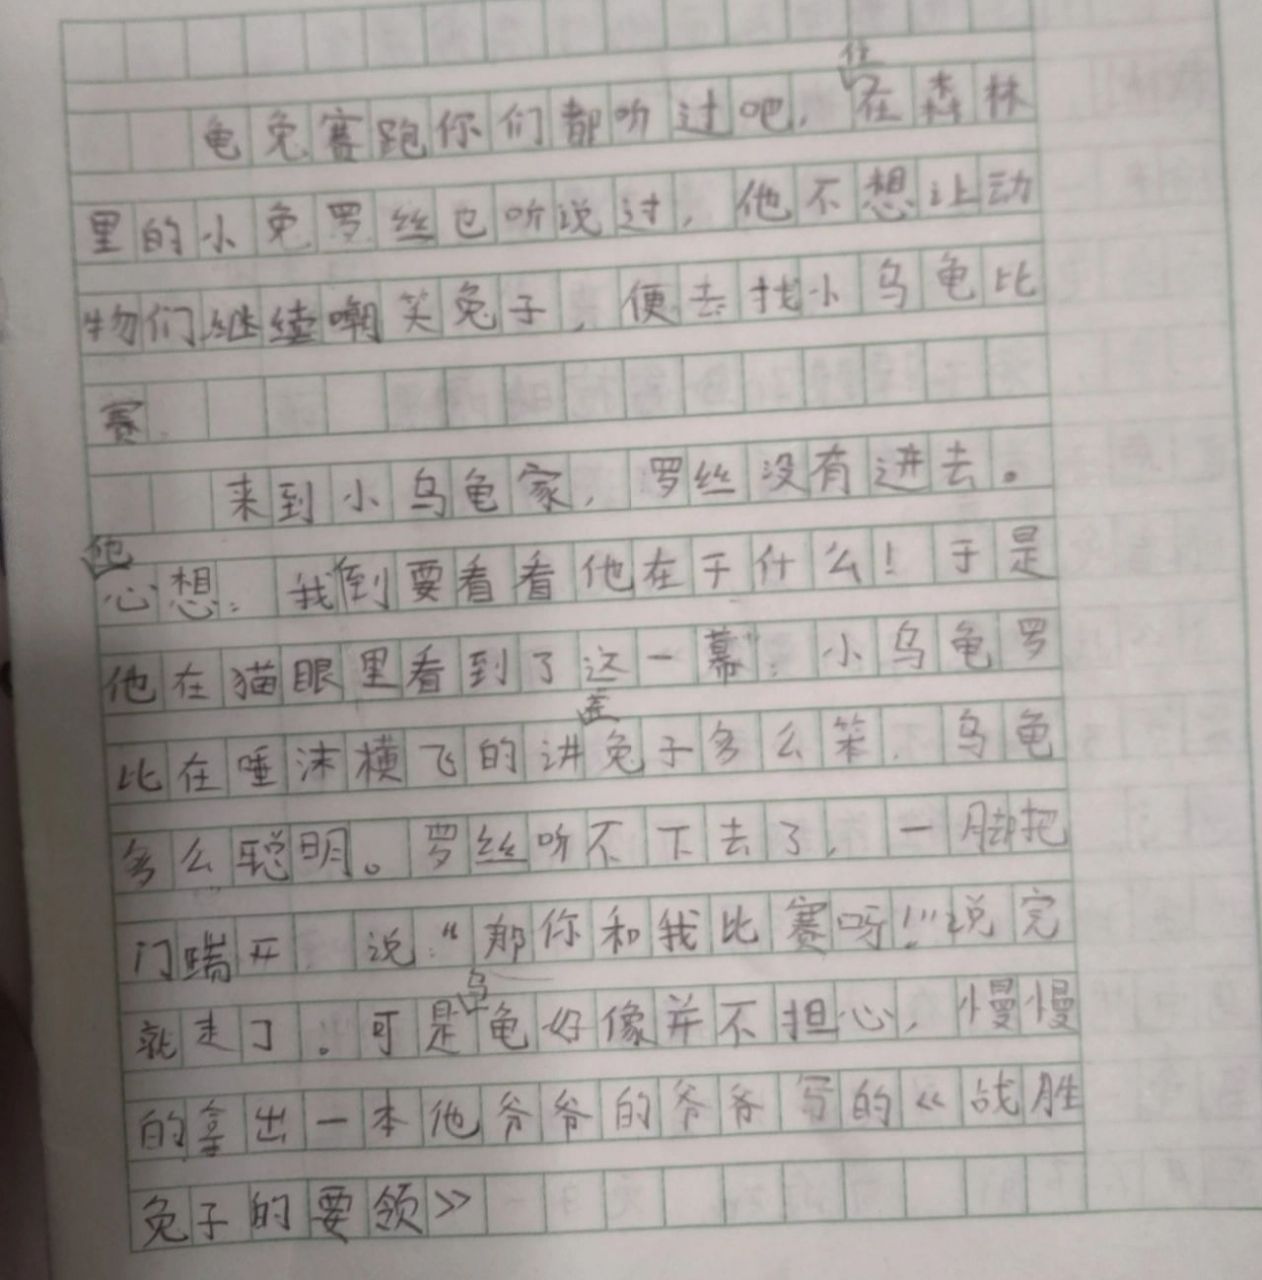 龟兔赛跑你们都听过吧，住在森林
里的小兔罗丝也听说过，他不想让动
物们继续嘲笑兔子，便去找小乌龟比
赛.
来到小乌龟家，罗丝没有进去。
他心想：我倒要看看他在干什么！于是
他在猫眼里看到了这一幕：小乌龟罗
比在唾沫横飞的讲兔子多么笨，乌龟
多么聪明。罗丝听不下去了，一脚把
门踹开，说：“那你和我比赛呀！”说完
就走了。可是乌龟好像并不担心，慢慢
的拿出一本他爷爷的爷爷写的《战胜
兔子的要领》